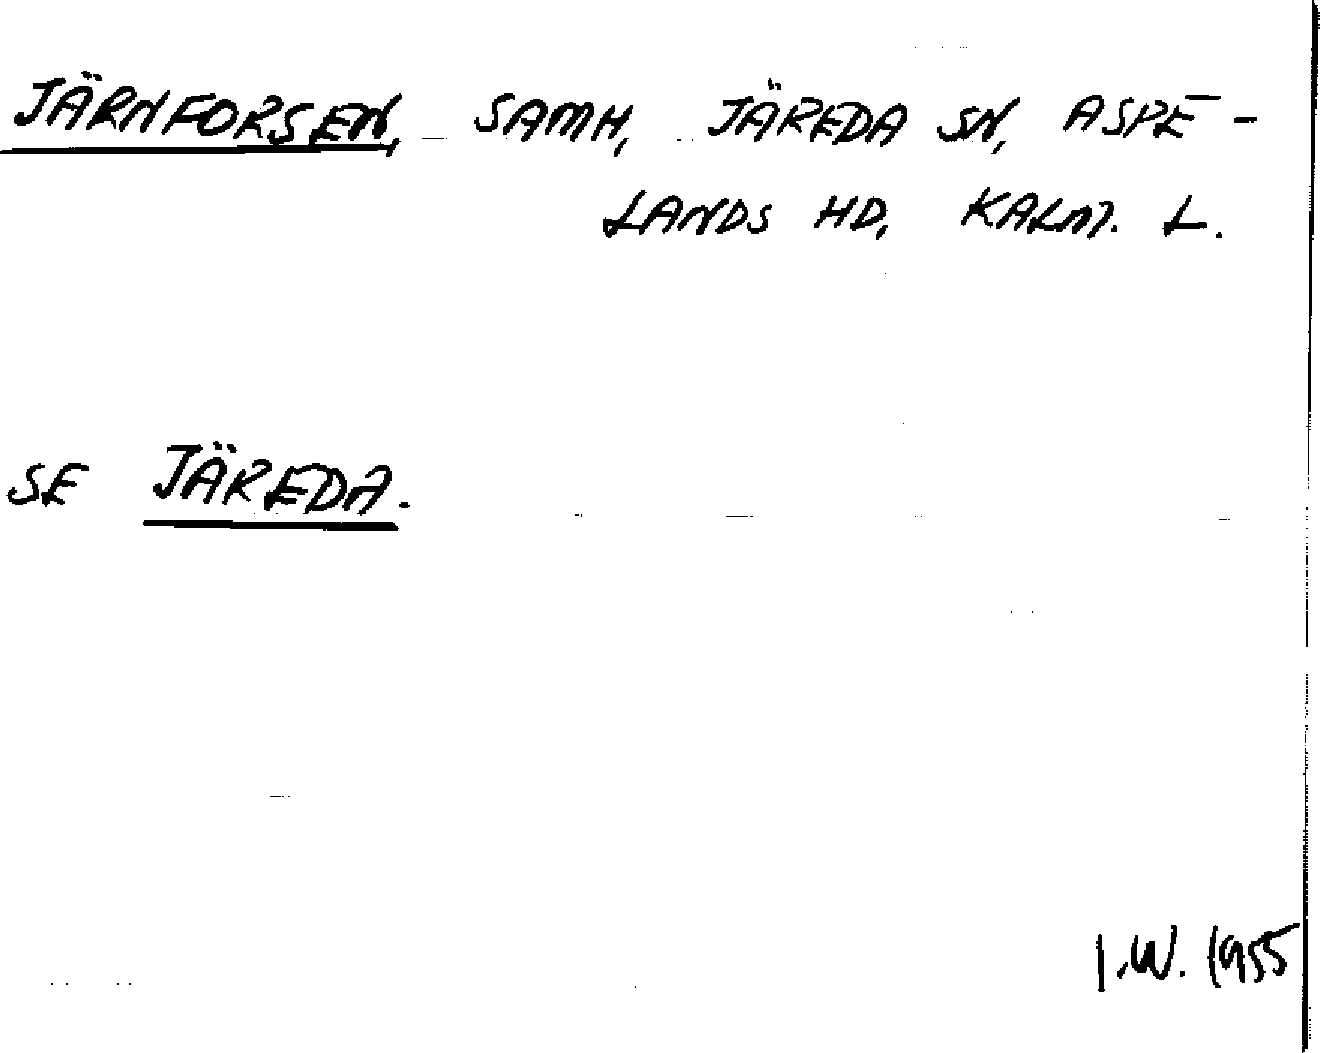 JÄRNFORSEN, SAMH, JÄREDA SN, ASPE-
LANDS HD, KALM. L.
SE JÄREDA.
I.W. 1955